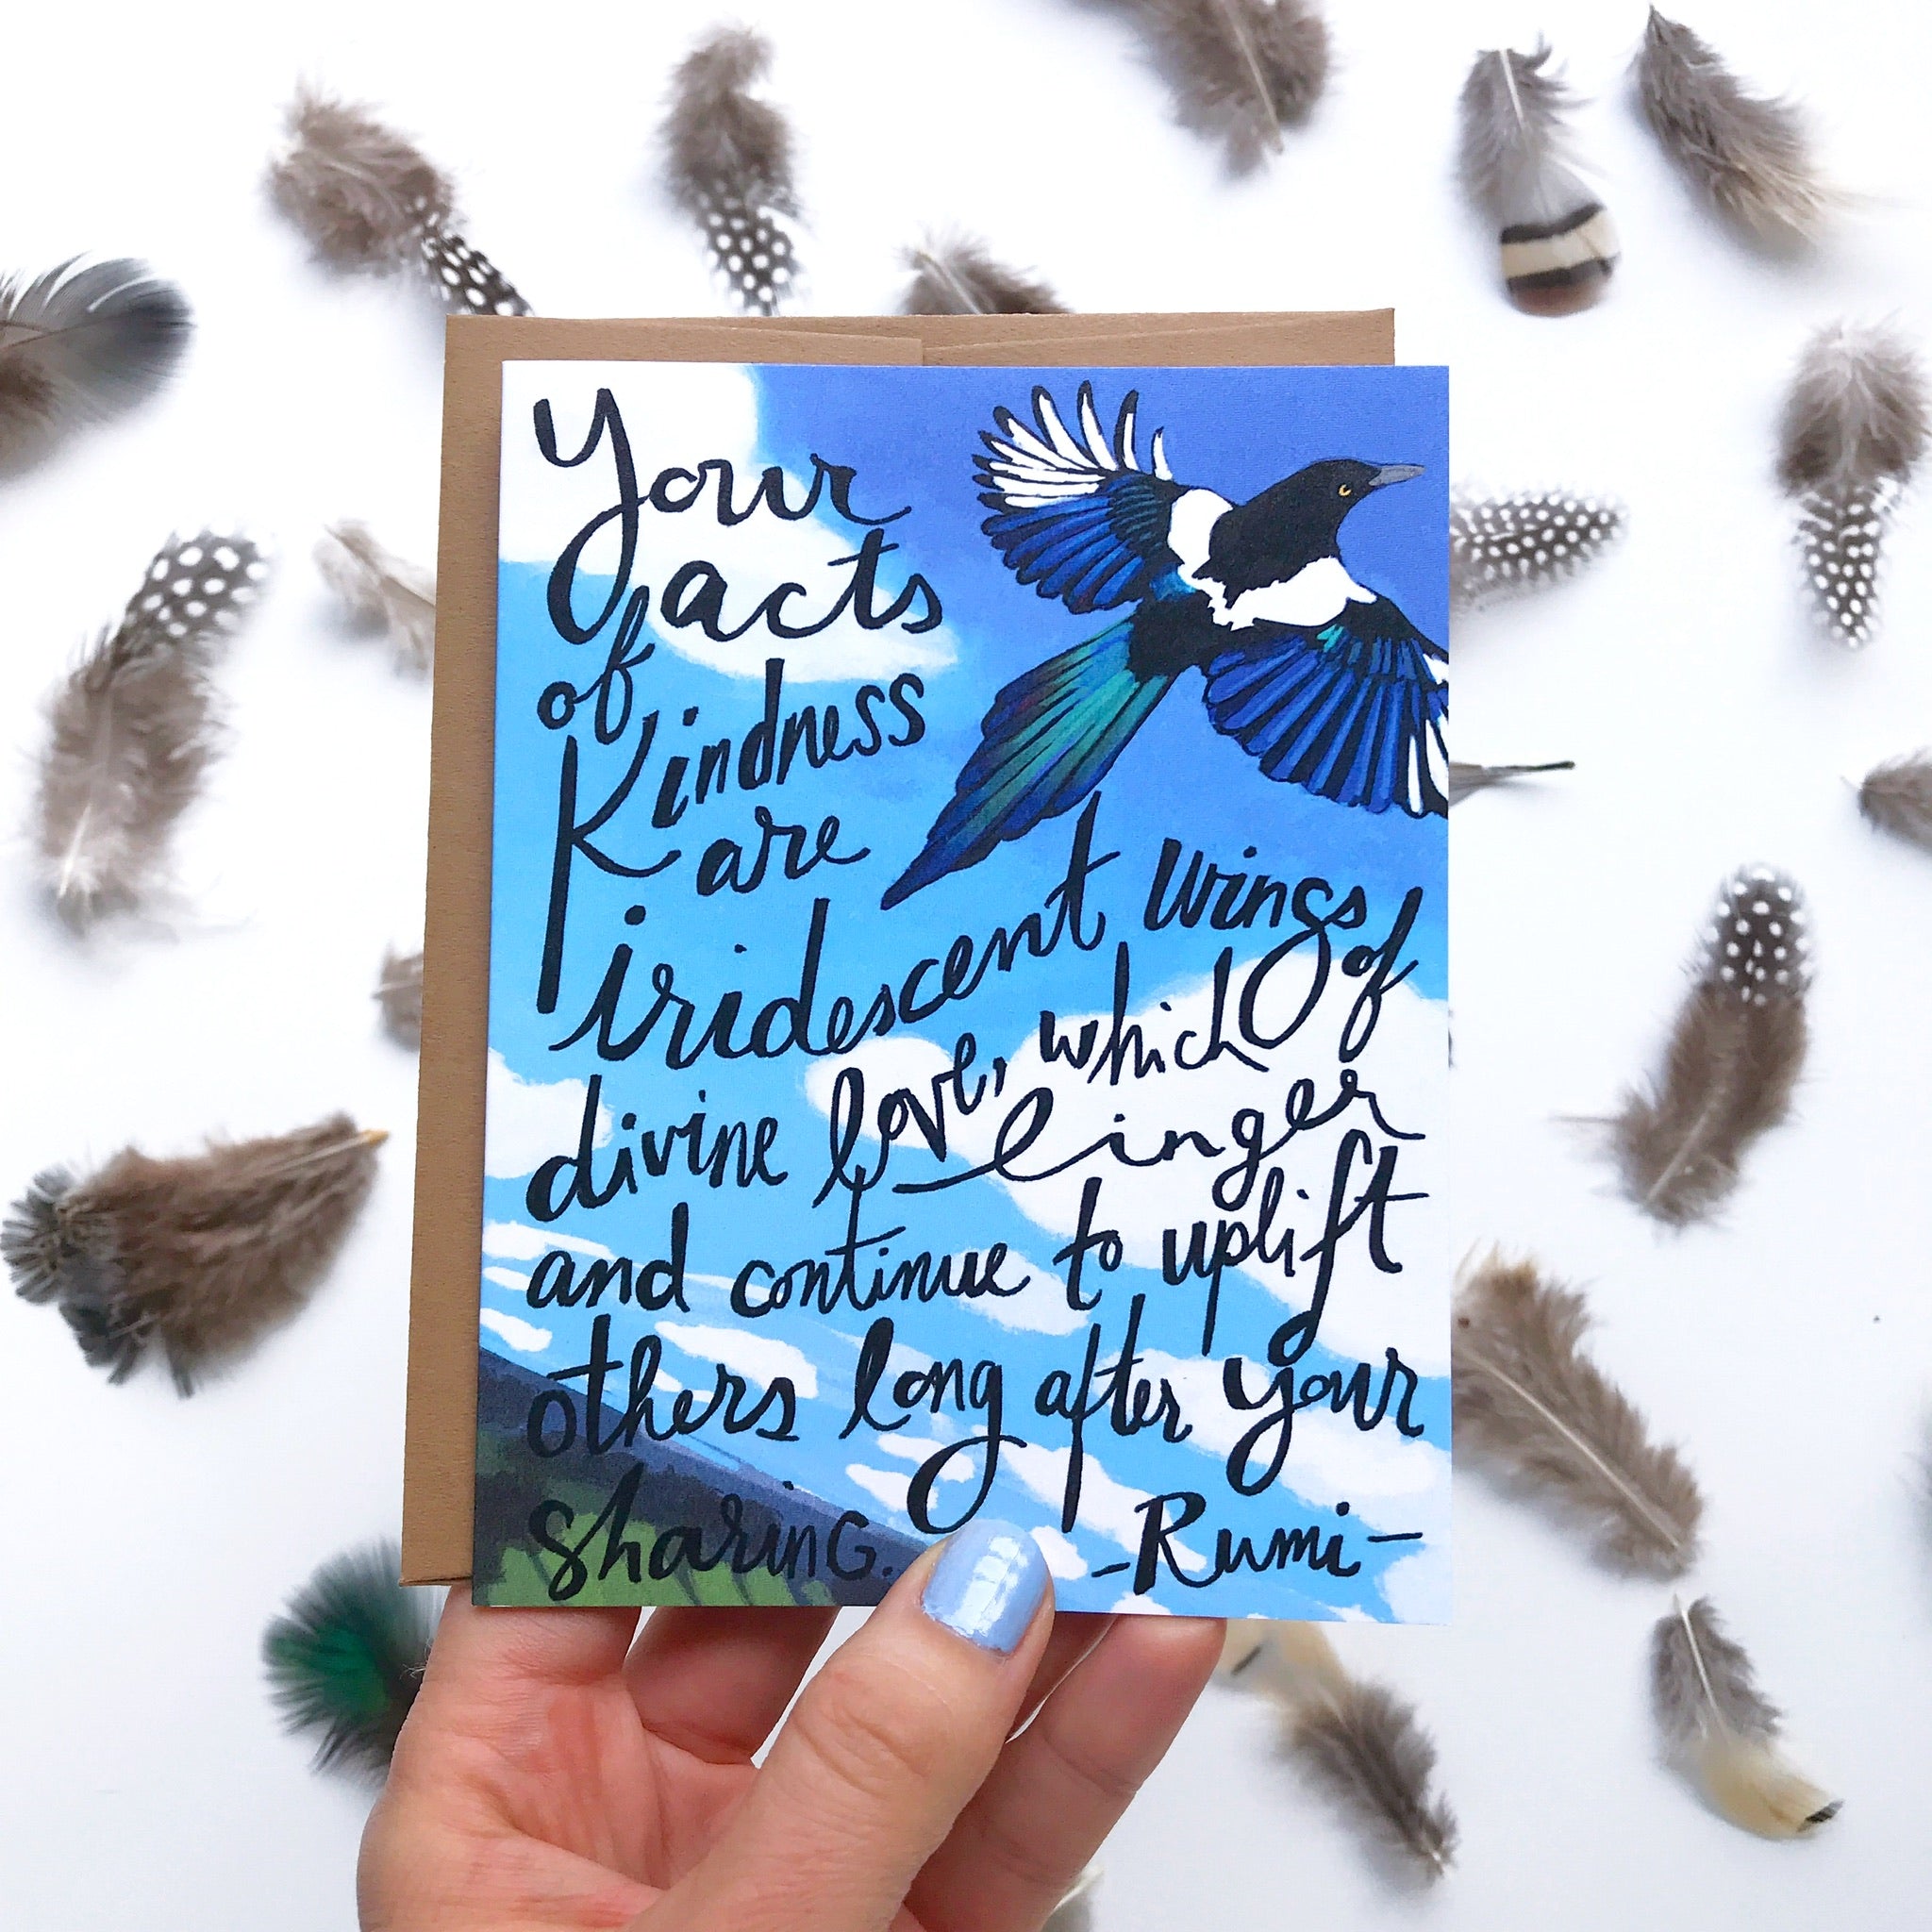 Your
acts
of
Kindness
are
iridescent wings
of
divine love, which
linger
and continue to uplift
others long after your
sharing.
-Rumi-